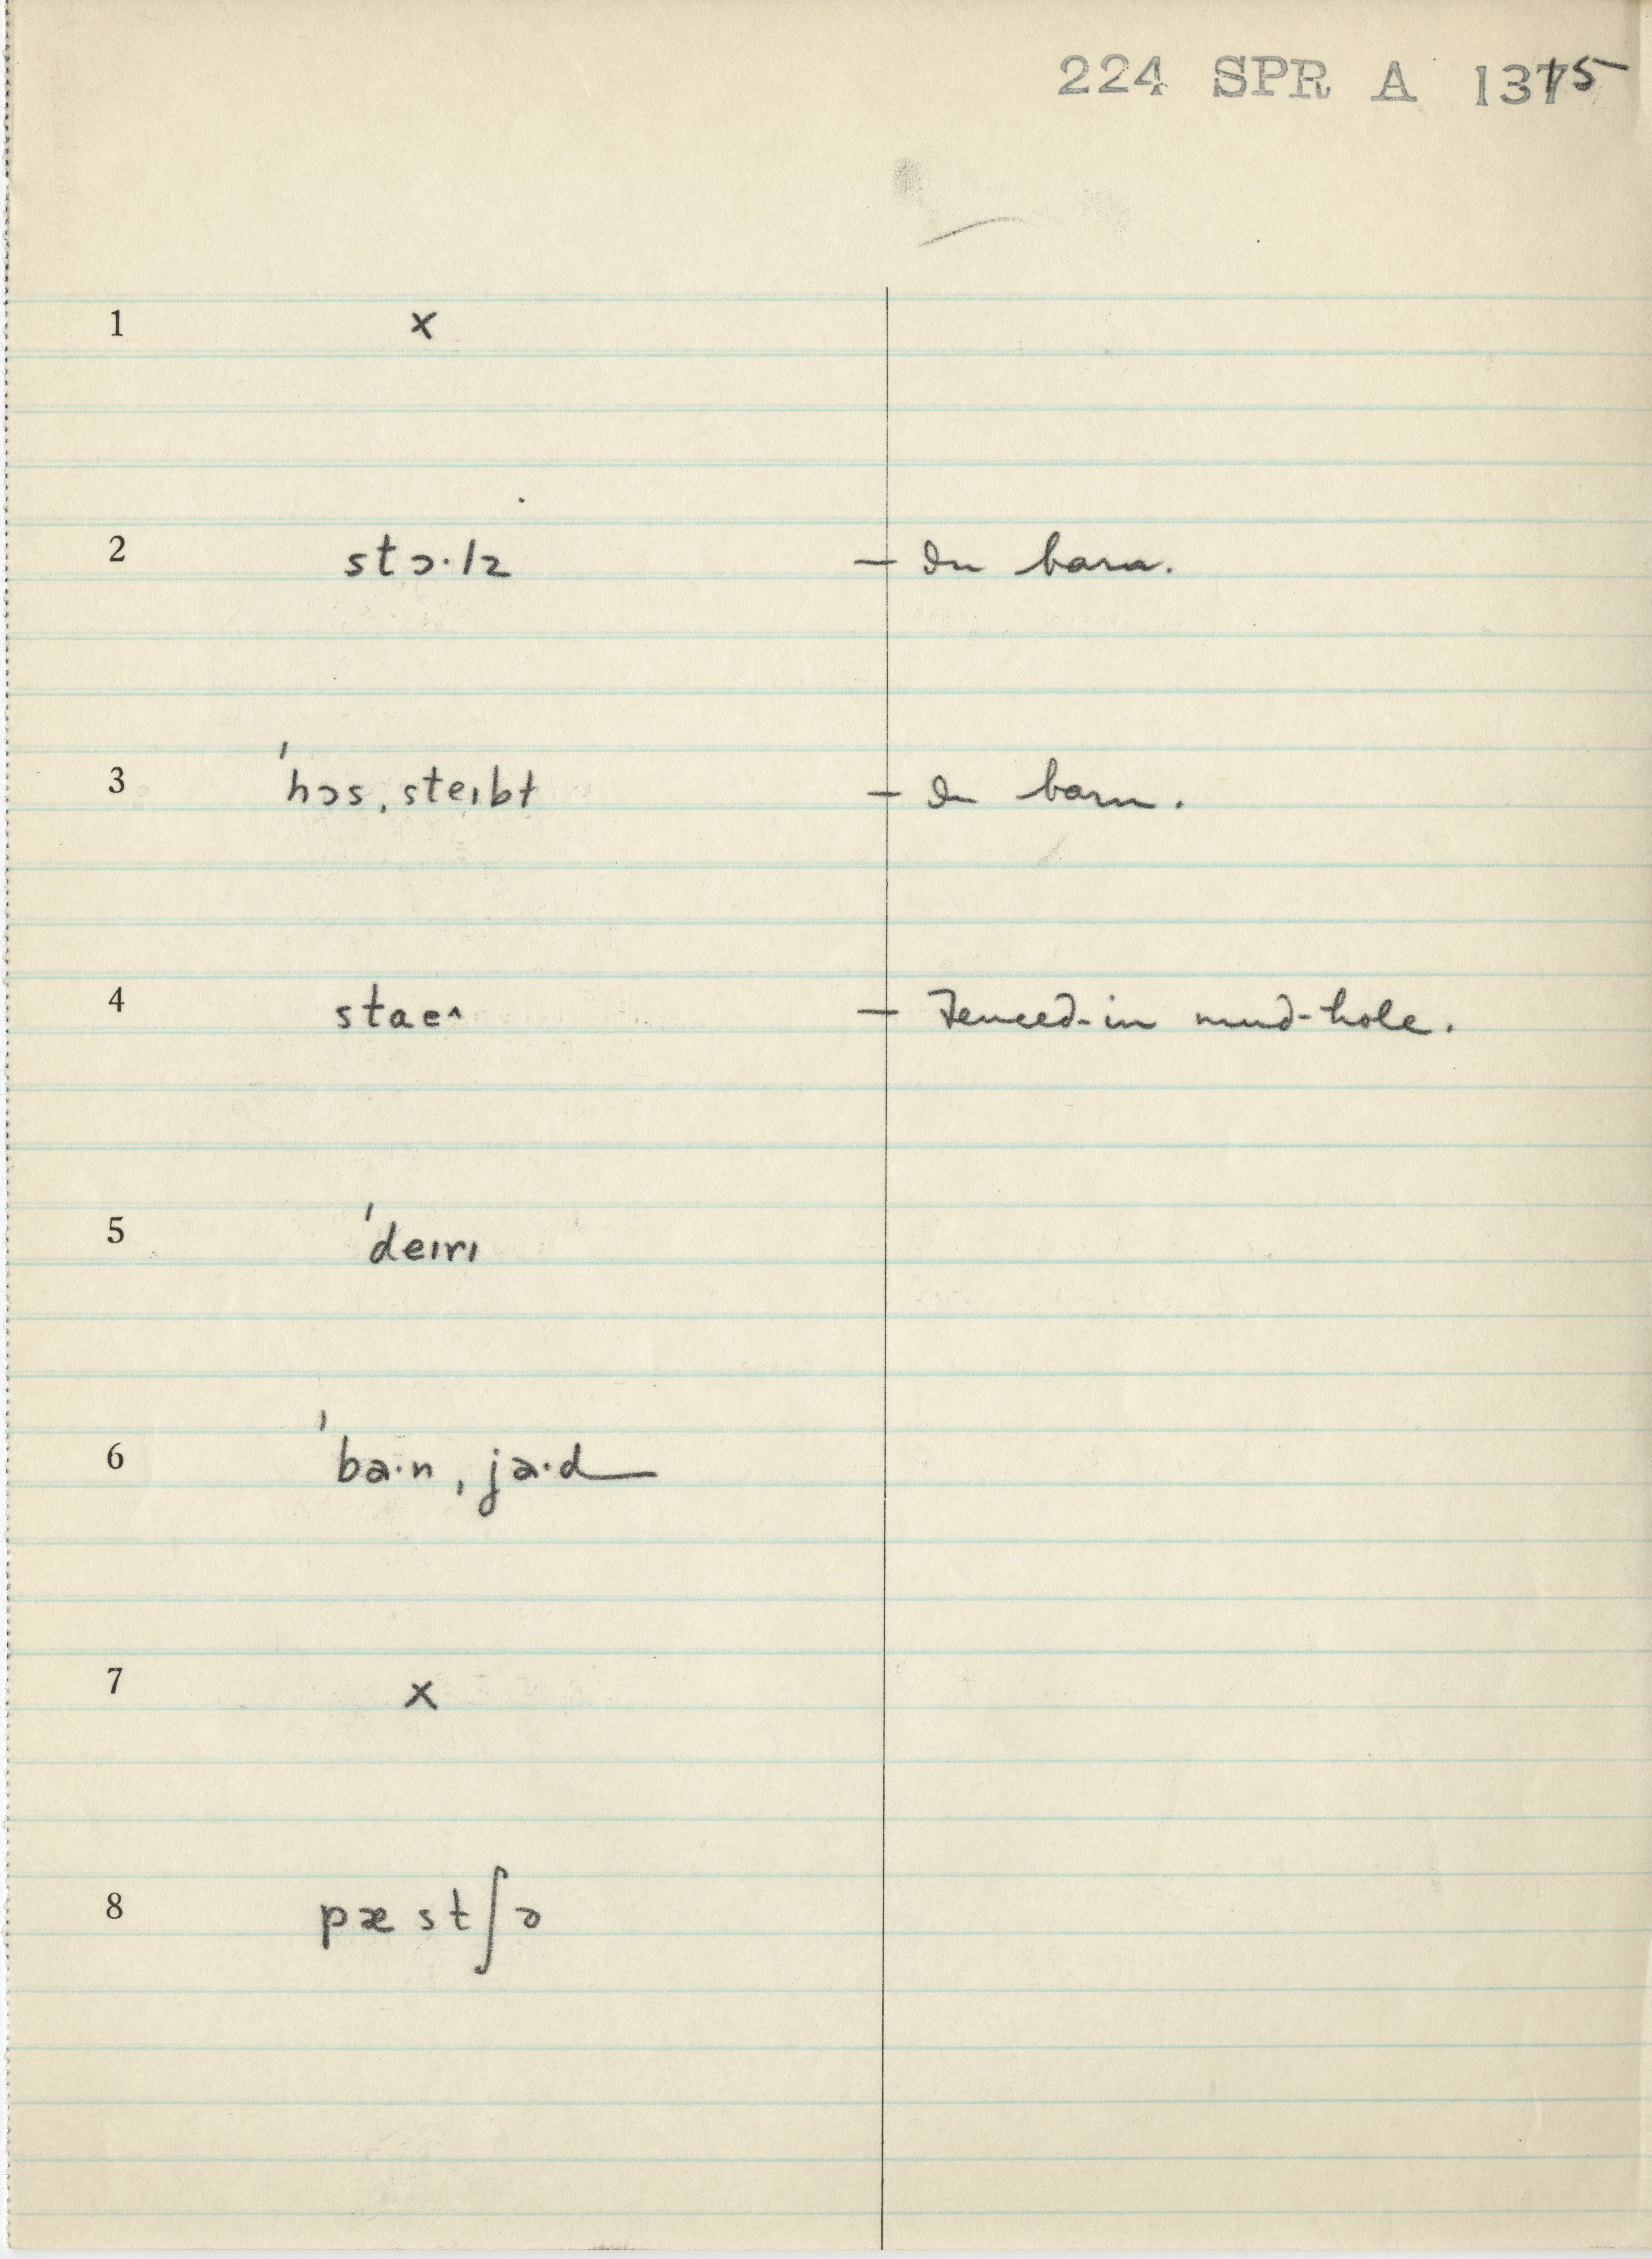 224 SPR A 1315
1 x
2 stɔ·lz — In barn.
3 ˈhɔs ˌsteɪbt — In barn.
4 stae^ — Fenced-in mud-hole.
5 ˈdeɪrɪ
6 ˈba·n ˌja·d
7 x
8 pæstʃə